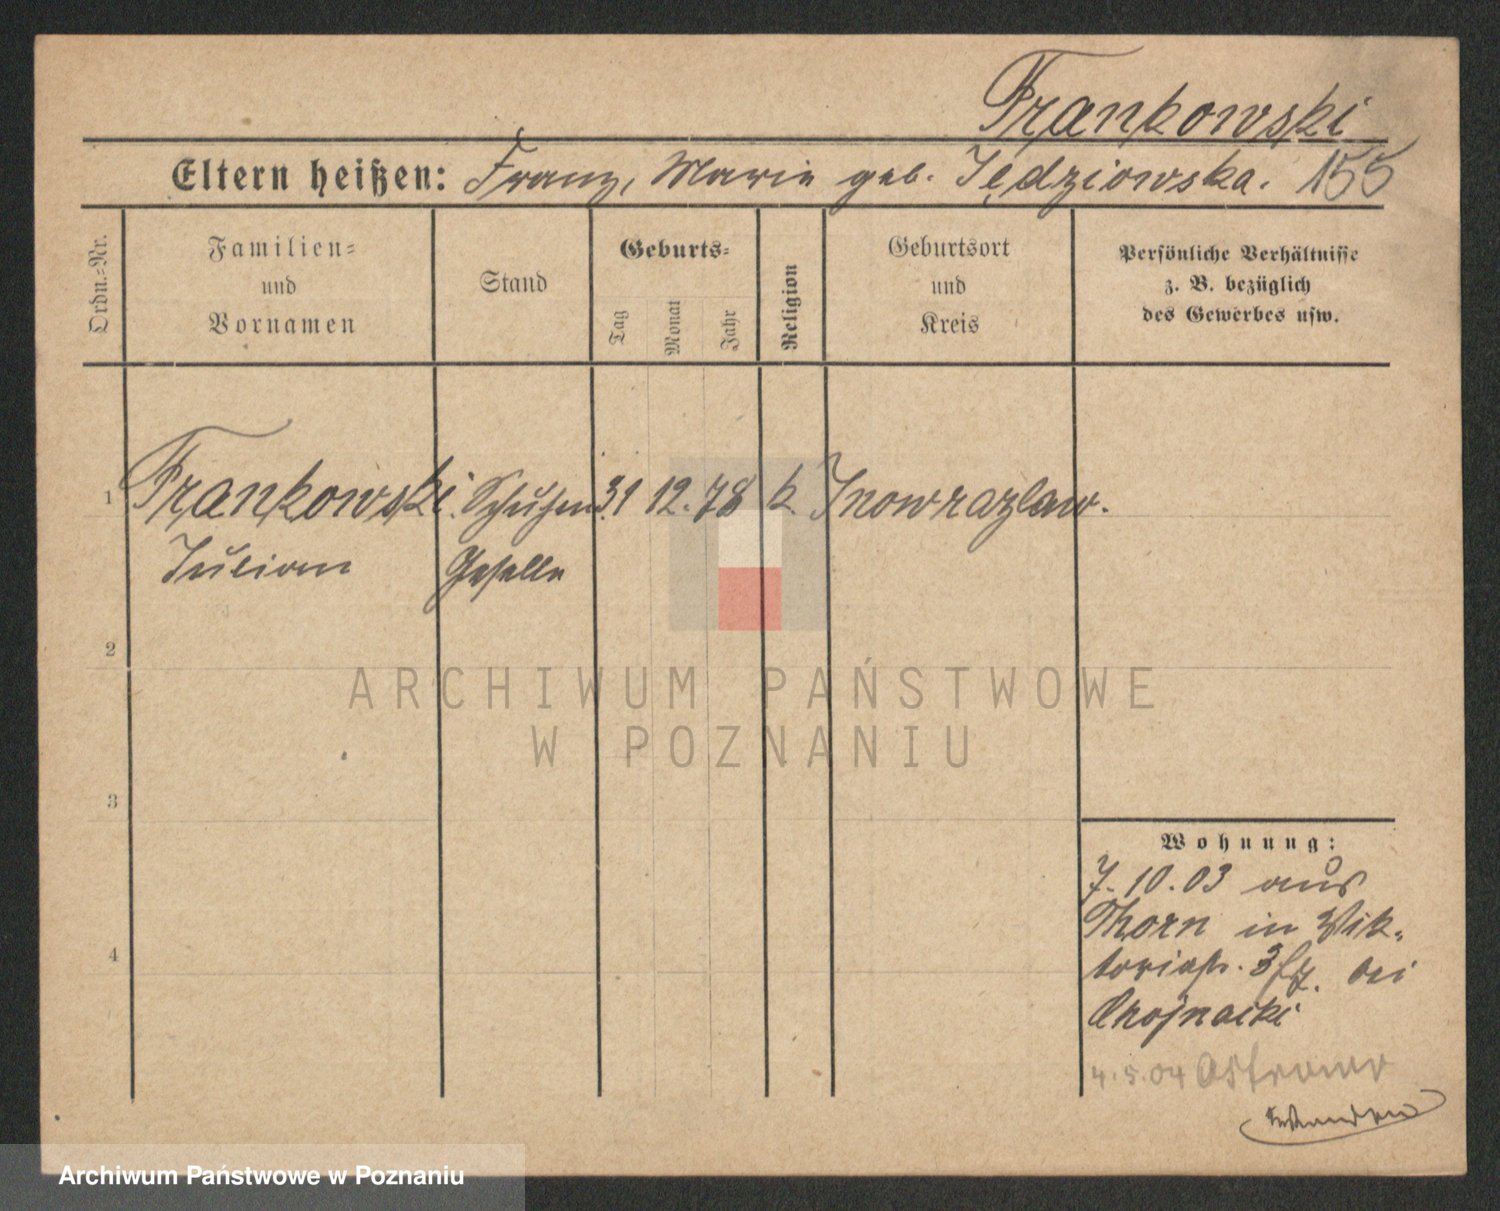 Frankowski
Eltern heißen: Franz, Marie geb. Jędziowska. 155
Ordn.-Nr.
Familien-
und
Vornamen
Stand
Geburts-
Tag
Monat
Jahr
Religion
Geburtsort
und
Kreis
Persönliche Verhältnisse
z. B. bezüglich
des Gewerbes usw.
1 Frankowski. 31 12. 78 k. Inowrazlaw.
Julian Geselle
2
3
4
Wohnung:
7.10.03 aus
Thorn in Vik-
toriastr. 3 bei
Chojnacki
4.5.04 Ostrowo
ARCHIWUM PAŃSTWOWE
W POZNANIU
Archiwum Państwowe w Poznaniu